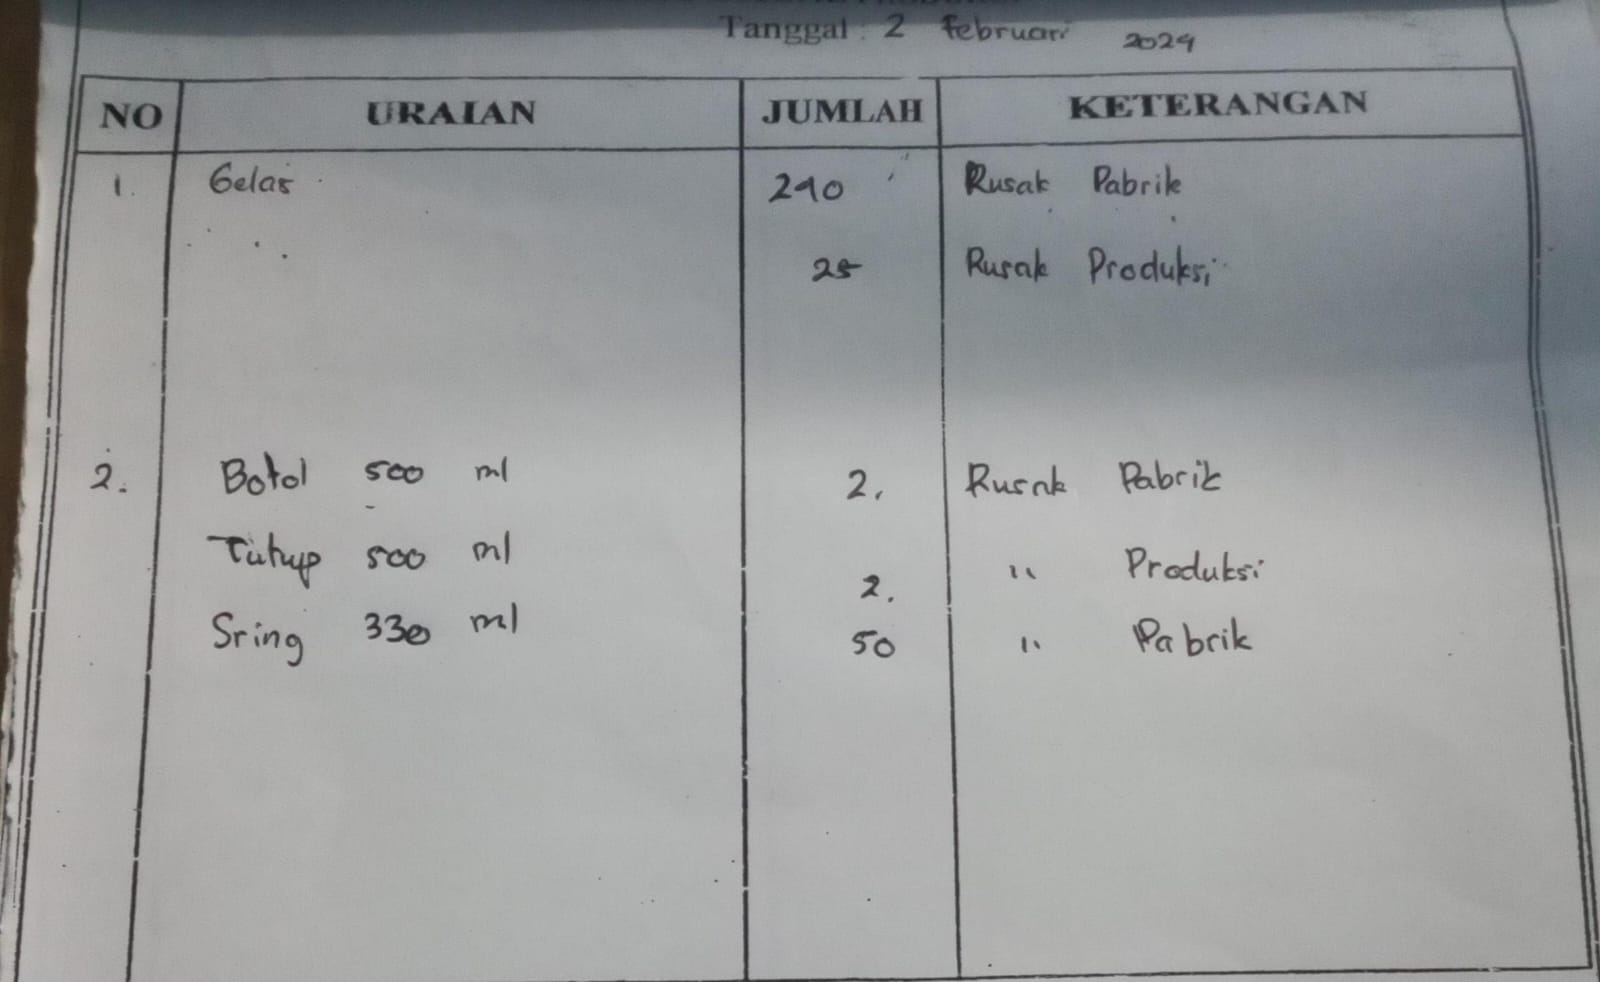 Tanggal : 2 Februari 2024
NO URAIAN JUMLAH KETERANGAN
1. Gelas 240 Rusak Pabrik
25 Rusak Produksi
2. Botol 500 ml 2. Rusak Pabrik
Tutup 500 ml 2. " Produksi
Sring 330 ml 50 " Pabrik